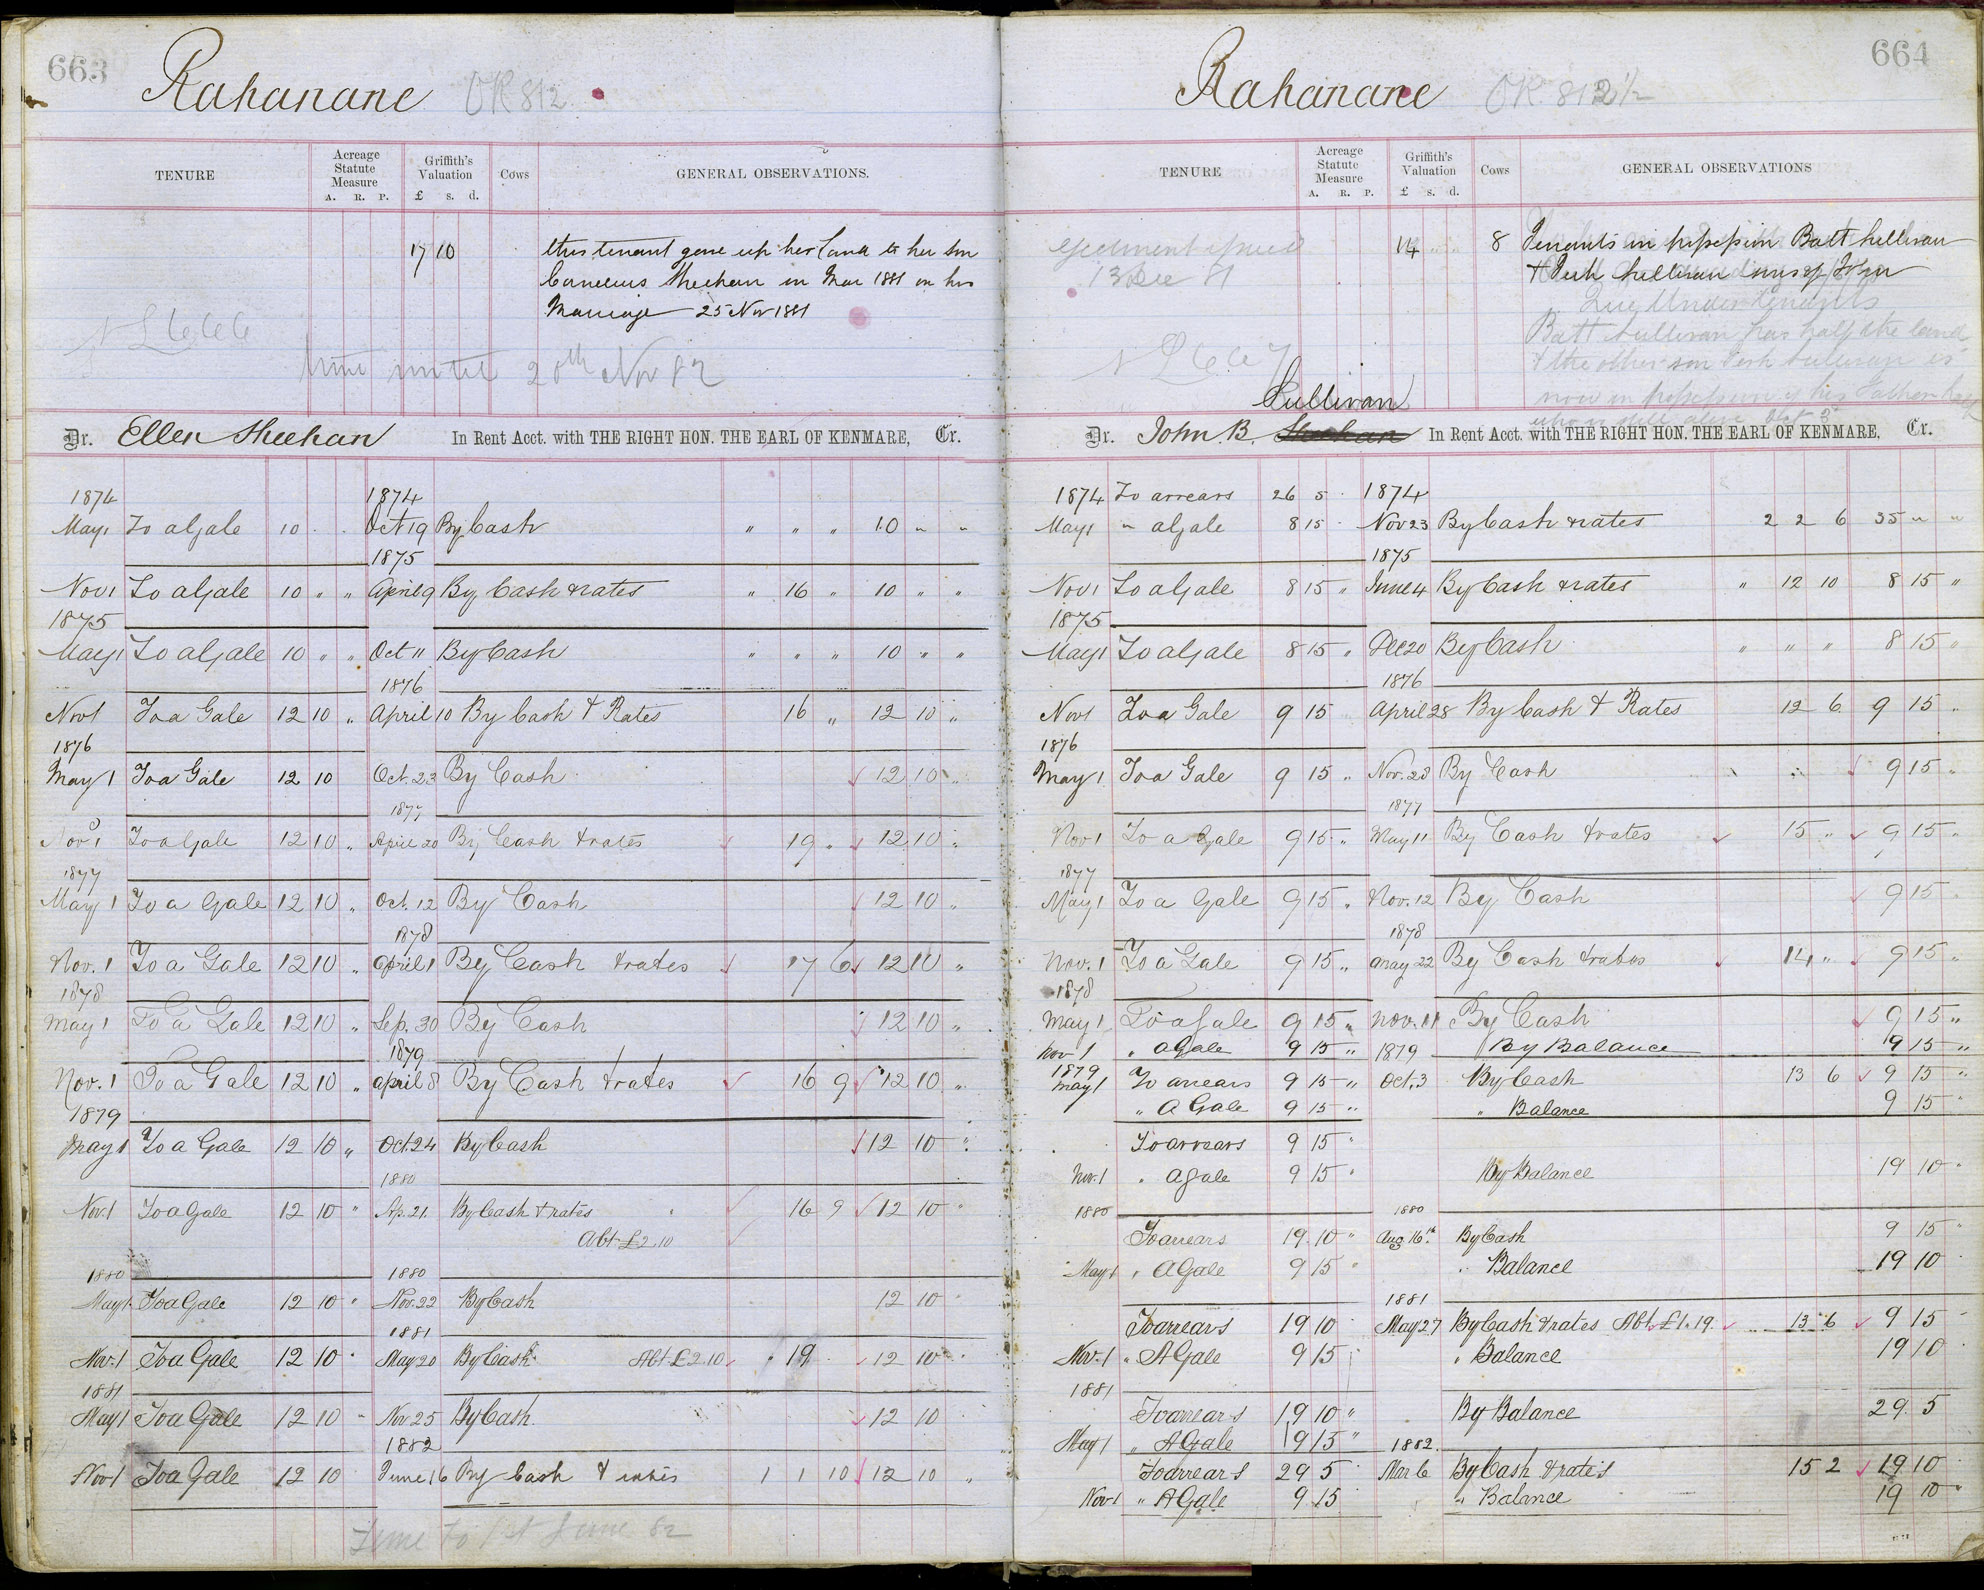 663
Rahanane OK 812
TENURE Acreage Statute Measure A. R. P. Griffith's Valuation £ s. d. Cows GENERAL OBSERVATIONS.
17 10 this tenant gave up her land to her son
Cornelius Sheehan in Mar 1881 on his
Marriage 25 Nov 1881
time until 20th Nov 82
Dr. Ellen Sheehan In Rent Acct. with THE RIGHT HON. THE EARL OF KENMARE, Cr.
1874 1874
May 1 To a Gale 10 Oct 19 By Cash " " " 10 " "
1875
Nov 1 To a Gale 10 " " April 9 By Cash & rates " 16 " 10 " "
1875
May 1 To a Gale 10 " " Oct 11 By Cash " " " 10 " "
1876
Nov 1 To a Gale 12 10 " April 10 By Cash & Rates 16 " 12 10 "
1876
May 1 To a Gale 12 10 Oct. 23 By Cash 12 10 "
1877
Nov 1 To a Gale 12 10 " April 20 By Cash & rates 19 " 12 10 "
1877
May 1 To a Gale 12 10 " Oct. 12 By Cash 12 10 "
1878
Nov. 1 To a Gale 12 10 " April 1 By Cash & rates 17 6 12 10 "
1878
May 1 To a Gale 12 10 " Sep. 30 By Cash 12 10 "
1879
Nov. 1 To a Gale 12 10 " April 8 By Cash & rates 16 9 12 10 "
1879
May 1 To a Gale 12 10 " Oct. 24 By Cash 12 10 "
1880
Nov. 1 To a Gale 12 10 " Ap. 21. By Cash & rates 16 9 12 10 "
Abt £2.10
1880 1880
May 1 To a Gale 12 10 " Nov. 22 By Cash 12 10 "
1881
Nov. 1 To a Gale 12 10 " May 20 By Cash Abt £2.10 " 19 12 10 "
1881
May 1 To a Gale 12 10 " Nov 25 By Cash 12 10
1882
Nov 1 To a Gale 12 10 June 16 By Cash & rates 1 1 10 12 10 "
Time to 1st June 82
664
Rahanane OK. 812½
TENURE Acreage Statute Measure A. R. P. Griffith's Valuation £ s. d. Cows GENERAL OBSERVATIONS
Ejectment 14 8 Tenants in possession Batt Sullivan
13 Dec 81 & Sullivan sons of John
Undertenants
Batt Sullivan has half the land
& the other son Sullivan is
now in possession of his Father's half
who is still alive
Sullivan
Dr. John. B. Sheehan In Rent Acct. with THE RIGHT HON. THE EARL OF KENMARE, Cr.
1874 To arrears 26 5 1874
May 1 " a Gale 8 15 Nov 23 By Cash & rates 2 2 6 35 " "
1875
Nov 1 To a Gale 8 15 " June 4 By Cash & rates " 12 10 8 15 "
1875
May 1 To a Gale 8 15 " Dec 20 By Cash " " " 8 15 "
1876
Nov 1 To a Gale 9 15 April 28 By Cash & Rates 12 6 9 15 "
1876
May 1 To a Gale 9 15 " Nov. 23 By Cash 9 15 "
1877
Nov 1 To a Gale 9 15 " May 11 By Cash & rates 15 " 9 15 "
1877
May 1 To a Gale 9 15 " Nov. 12 By Cash 9 15
1878
Nov. 1 To a Gale 9 15 " May 22 By Cash & rates 14 " 9 15 "
1878
May 1 To a Gale 9 15 " Nov. 11 By Cash 9 15 "
Nov 1 " a Gale 9 15 " 1879 By Balance 9 15 "
1879
May 1 To arrears 9 15 " Oct. 3 By Cash 13 6 9 15 "
" A Gale 9 15 " " Balance 9 15 "
To arrears 9 15 "
Nov. 1 " a Gale 9 15 " By Balance 19 10 "
1880 1880
To arrears 19. 10 " Aug 16th By Cash 9 15 "
May 1 " A Gale 9 15 " " Balance 19 10
1881
To arrears 19 10 May 27 By Cash & rates Abt. £1.19. 13 6 9 15
Nov. 1 " A Gale 9 15 " Balance 19 10
1881
To arrears 19 10 " By Balance 29. 5
May 1 " A Gale 9 15 " 1882.
To arrears 29 5 Mar 6 By Cash & rates 15 2 19 10
Nov 1 " A Gale 9. 15 " Balance 19 10 "